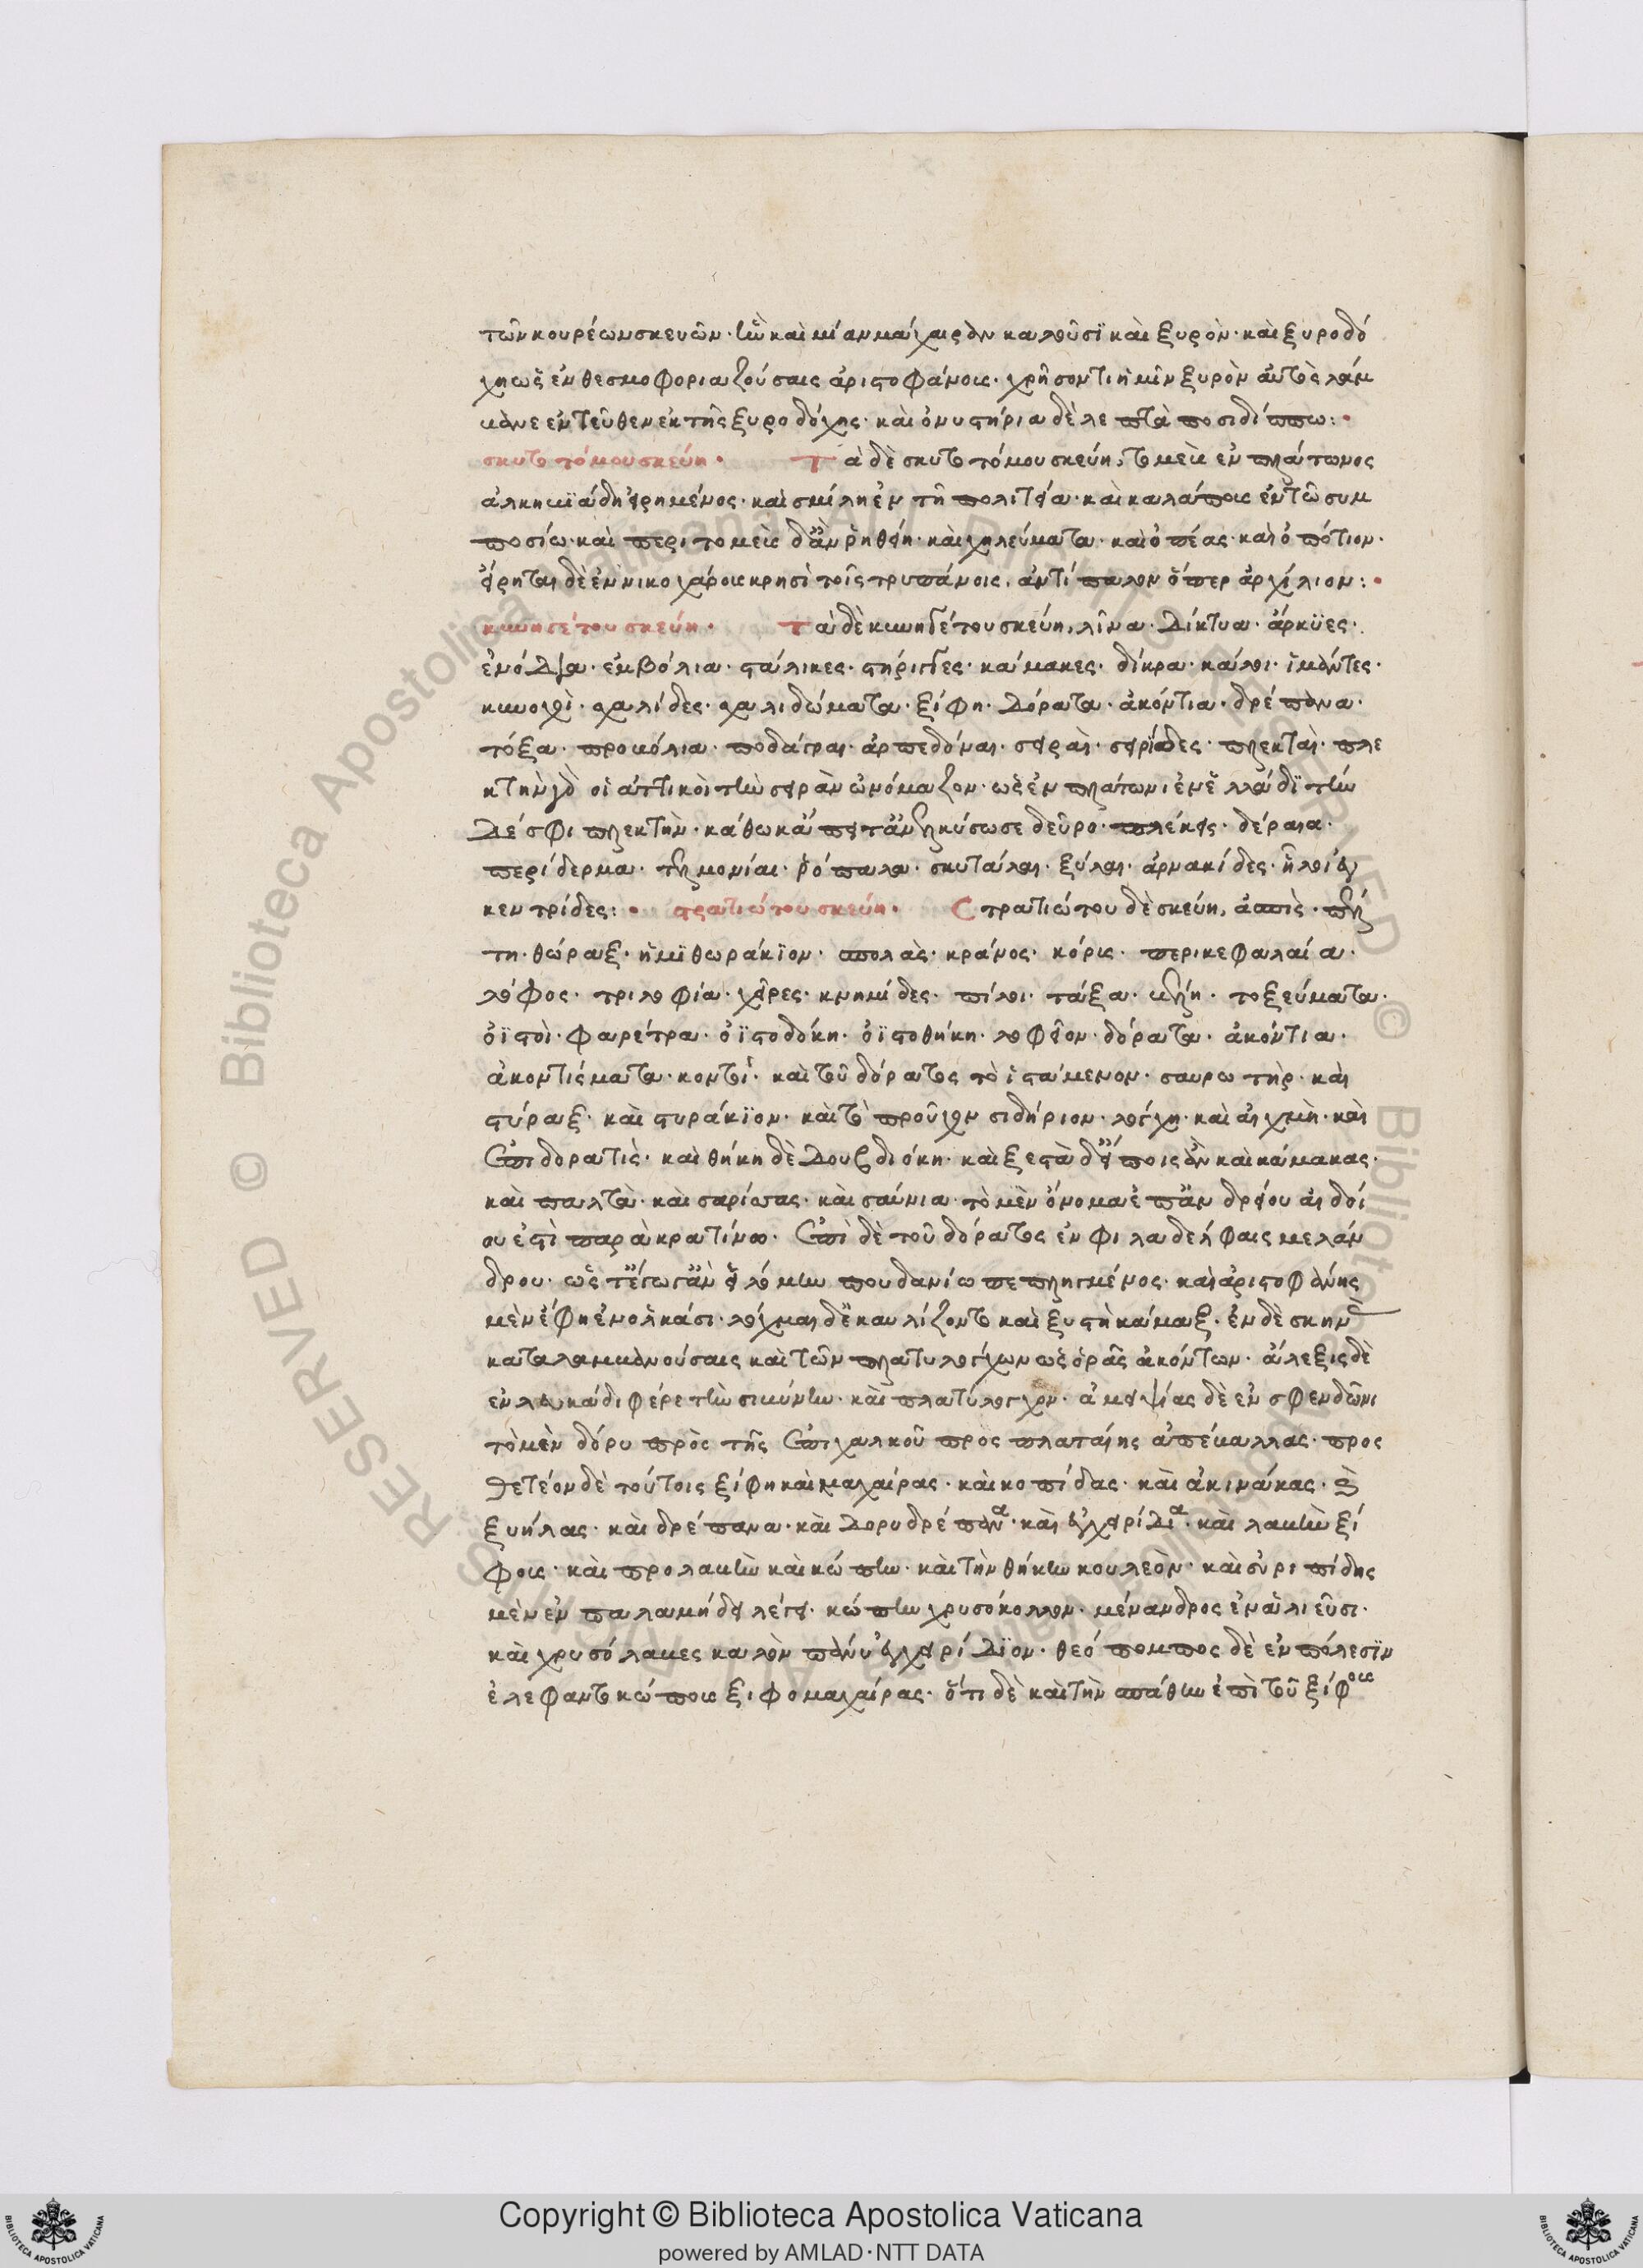 τῶν κουρέων σκευῶν· ἣν καὶ μίαν μάχαιραν καλοῦσϊ καὶ ξυρὸν· καὶ ξυροδό
χη ὡς ἐν θεσμοφοριαζούσαις ἀριστοφάνους· χρῆσον τι ἡμῖν ξυρὸν αὐτὸς λάμ
βανε ἐντεῦθεν ἐκ τῆς ξυροδόχης· καὶ ὀνυστήρια δὲ λεπτὰ ποσιδίππω:·
σκυτοτόμου σκεύη· Τὰ δὲ σκυτοτόμου σκεύη, τομεὺς ἐν πλάτωνος
ἀλκηβϊάδη εἰρημένος· καὶ σμίλη ἐν τῆ πολιτεία· καὶ καλάπους ἐν τῶ συμ
ποσίω· καὶ περιτομεὺς δ' ἂν ῥηθείη· καὶ χηλεύματα· καὶ ὀπέας· καὶ ὀπότιον·
εἴρηται δὲ ἐν νικοχάρους κρησὶ τοῖς τρυπάνοις, ἀντίπαλον ὅπερ ἀρχίλιον:·
κυνηγέτου σκεύη· Τὰ δὲ κυνηγέτου σκεύη, λῖνα· δίκτυα· ἄρκϋες·
ἐνόδια· ἐμβόλια· στάλικες· στήριγγες· κάμακες· δίκρα· κάλοι· ἱμάντες·
κυνοῦχοι· σχαλίδες· σχαλιδώματα· ξίφη· δόρατα· ἀκόντια· δρέπανα·
τόξα· προβόλια· ποδάγραι· ἀρπεδόναι· σειραὶ· σειρϊάδες· πλεκταὶ· πλε
κτὴν γὰρ οἱ ἀττικοὶ τὴν σειρὰν ὠνόμαζον· ὡς ἐν πλάτωνι ἐν ἑλλάδϊ τὴν
δέσφι πλεκτὴν· κάθω κἄπειτ' ἀνελκύσω σε δεῦρο· πλέκεις· δέραια·
περίδερμα· τελμονίαι· ῥόπαλα· σκυτάλαι· ξύλαι· ἀρνακίδες· ἧλοι ἐγ
κεντρίδες:· στρατιώτου σκεύη· Στρατιώτου δὲ σκεύη, ἀσπὶς· πέλ
τη· θώραξ· ἡμϊθωράκϊον· σπολὰς· κράνος· κόρις· περικεφαλαία·
λόφος· τριλοφία· χεῖρες· κνημίδες· πίλοι· τάξα· βέλη· τοξεύματα·
ὀϊστοὶ· φαρέτρα· ὀϊστοδόκη· ὀϊστοθήκη· λοφεῖον· δόρατα· ἀκόντια·
ἀκοντίσματα· κοντοὶ· καὶ τοῦ δόρατος τὸ ἱστάμενον· σαυρωτὴρ· καὶ
στύραξ· καὶ στυράκϊον· καὶ τὸ προῦχον σιδήριον· λόγχη· καὶ αἰχμὴ· καὶ
ἐπιδορατὶς· καὶ θήκη δὲ δουροδόκη· καὶ ξεστὰ δ' εἴποις ἂν καὶ κάμακας·
καὶ παλτὰ· καὶ σαρίσσας· καὶ σαύνια· τὸ μὲν ὄνομα ἐπ' ἀνδρείου αἰδοί
ου ἐστὶ παρὰ κρατίνω· ἐπὶ δὲ τοῦ δόρατος ἐν φιλαδέλφαις μενάν
δρου· ὡς τ' ἔγωγ' ἂν εἱλόμην που δανίω πεπληγμένος· καὶ ἀριστοφάνης
μὲν ἔφη ἐν ὁλκάσι· λόγχαι δ' ἐκαυλίζοντο καὶ ξυστὴ κάμαξ· ἐν δὲ σκηνὰς
καταλαμβανούσαις καὶ τῶν πλατυλόγχων ὡς ὁρᾶς ἀκόντων· ἄλεξις δὲ
ἐν λευκάδι φέρε τὴν σιβύνην· καὶ πλατύλογχον· ἀμειψίας δὲ ἐν σφενδόνη
τὸ μὲν δόρυ πρὸς τῆς ἐπιχαλκοῦ πρὸς πλαταίης ἀπέβαλλας· προς
θετέον δὲ τούτοις ξίφη καὶ μαχαίρας· καὶ κοπίδας· καὶ ἀκινάκας· καὶ
ξυήλας· καὶ δρέπανα· καὶ δορυδρέπανα· καὶ ἐγχειρίδια· καὶ λαβὴν ξί
φους· καὶ προλαβὴν καὶ κώπην· καὶ τὴν θήκην κουλεὸν· καὶ εὐριπίδης
μὲν ἐν παλαμήδει λέγει· κώπην χρυσόκολλον· μένανδρος ἐν ἁλιεῦσι·
καὶ χρυσόλαβες καλὸν πάνυ ἐγχειρίδϊον· θεόπομπος δὲ ἐν πόλεσϊν
ἐλεφαντοκώπους ξιφομαχαίρας· ὅτι δὲ καὶ τὴν σπάθην ἐπὶ τοῦ ξίφους
Copyright © Biblioteca Apostolica Vaticana
powered by AMLAD·NTT DATA